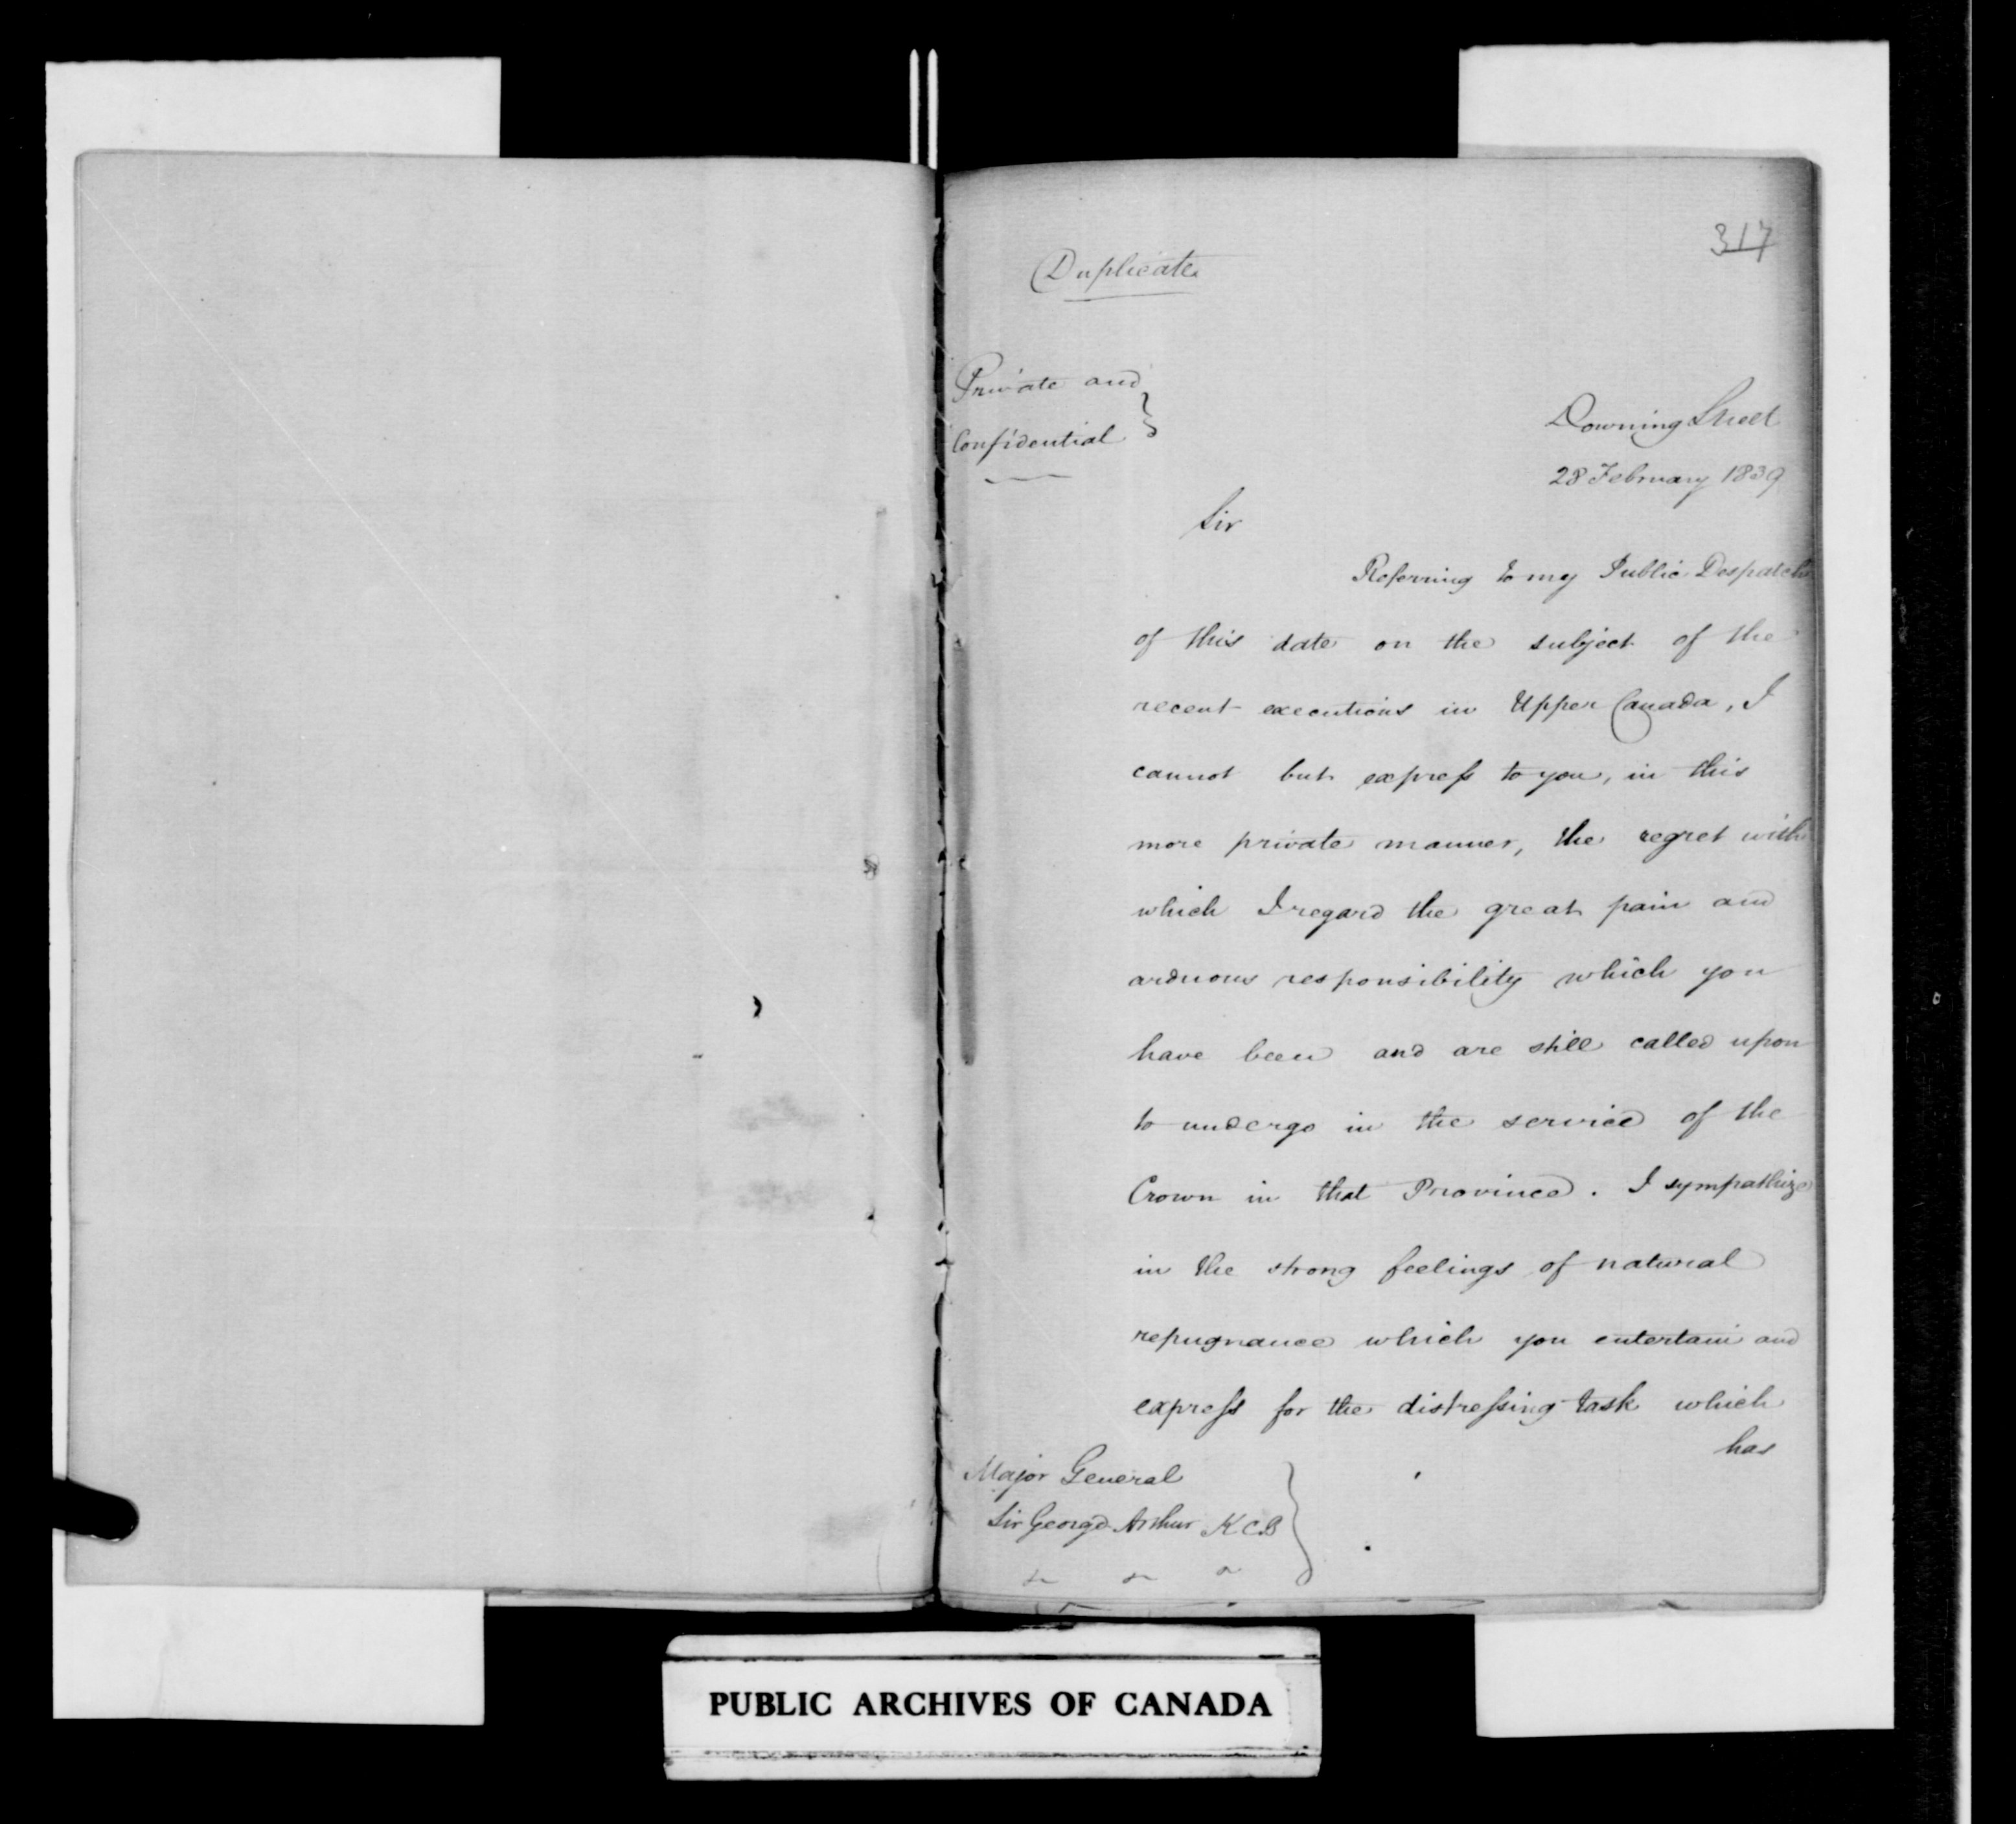 317
Duplicate
Private and
Confidential
Downing Street
28 February 1839
Sir
Referring to my Public Despatch
of this date on the subject of the
recent executions in Upper Canada, I
cannot but express to you, in this
more private manner, the regret with
which I regard the great pain and
arduous responsibility which you
have been and are still called upon
to undergo in the service of the
Crown in that Province. I sympathize
in the strong feelings of natural
repugnance which you entertain and
express for the distressing task which
has
Major General
Sir George Arthur KCB
PUBLIC ARCHIVES OF CANADA